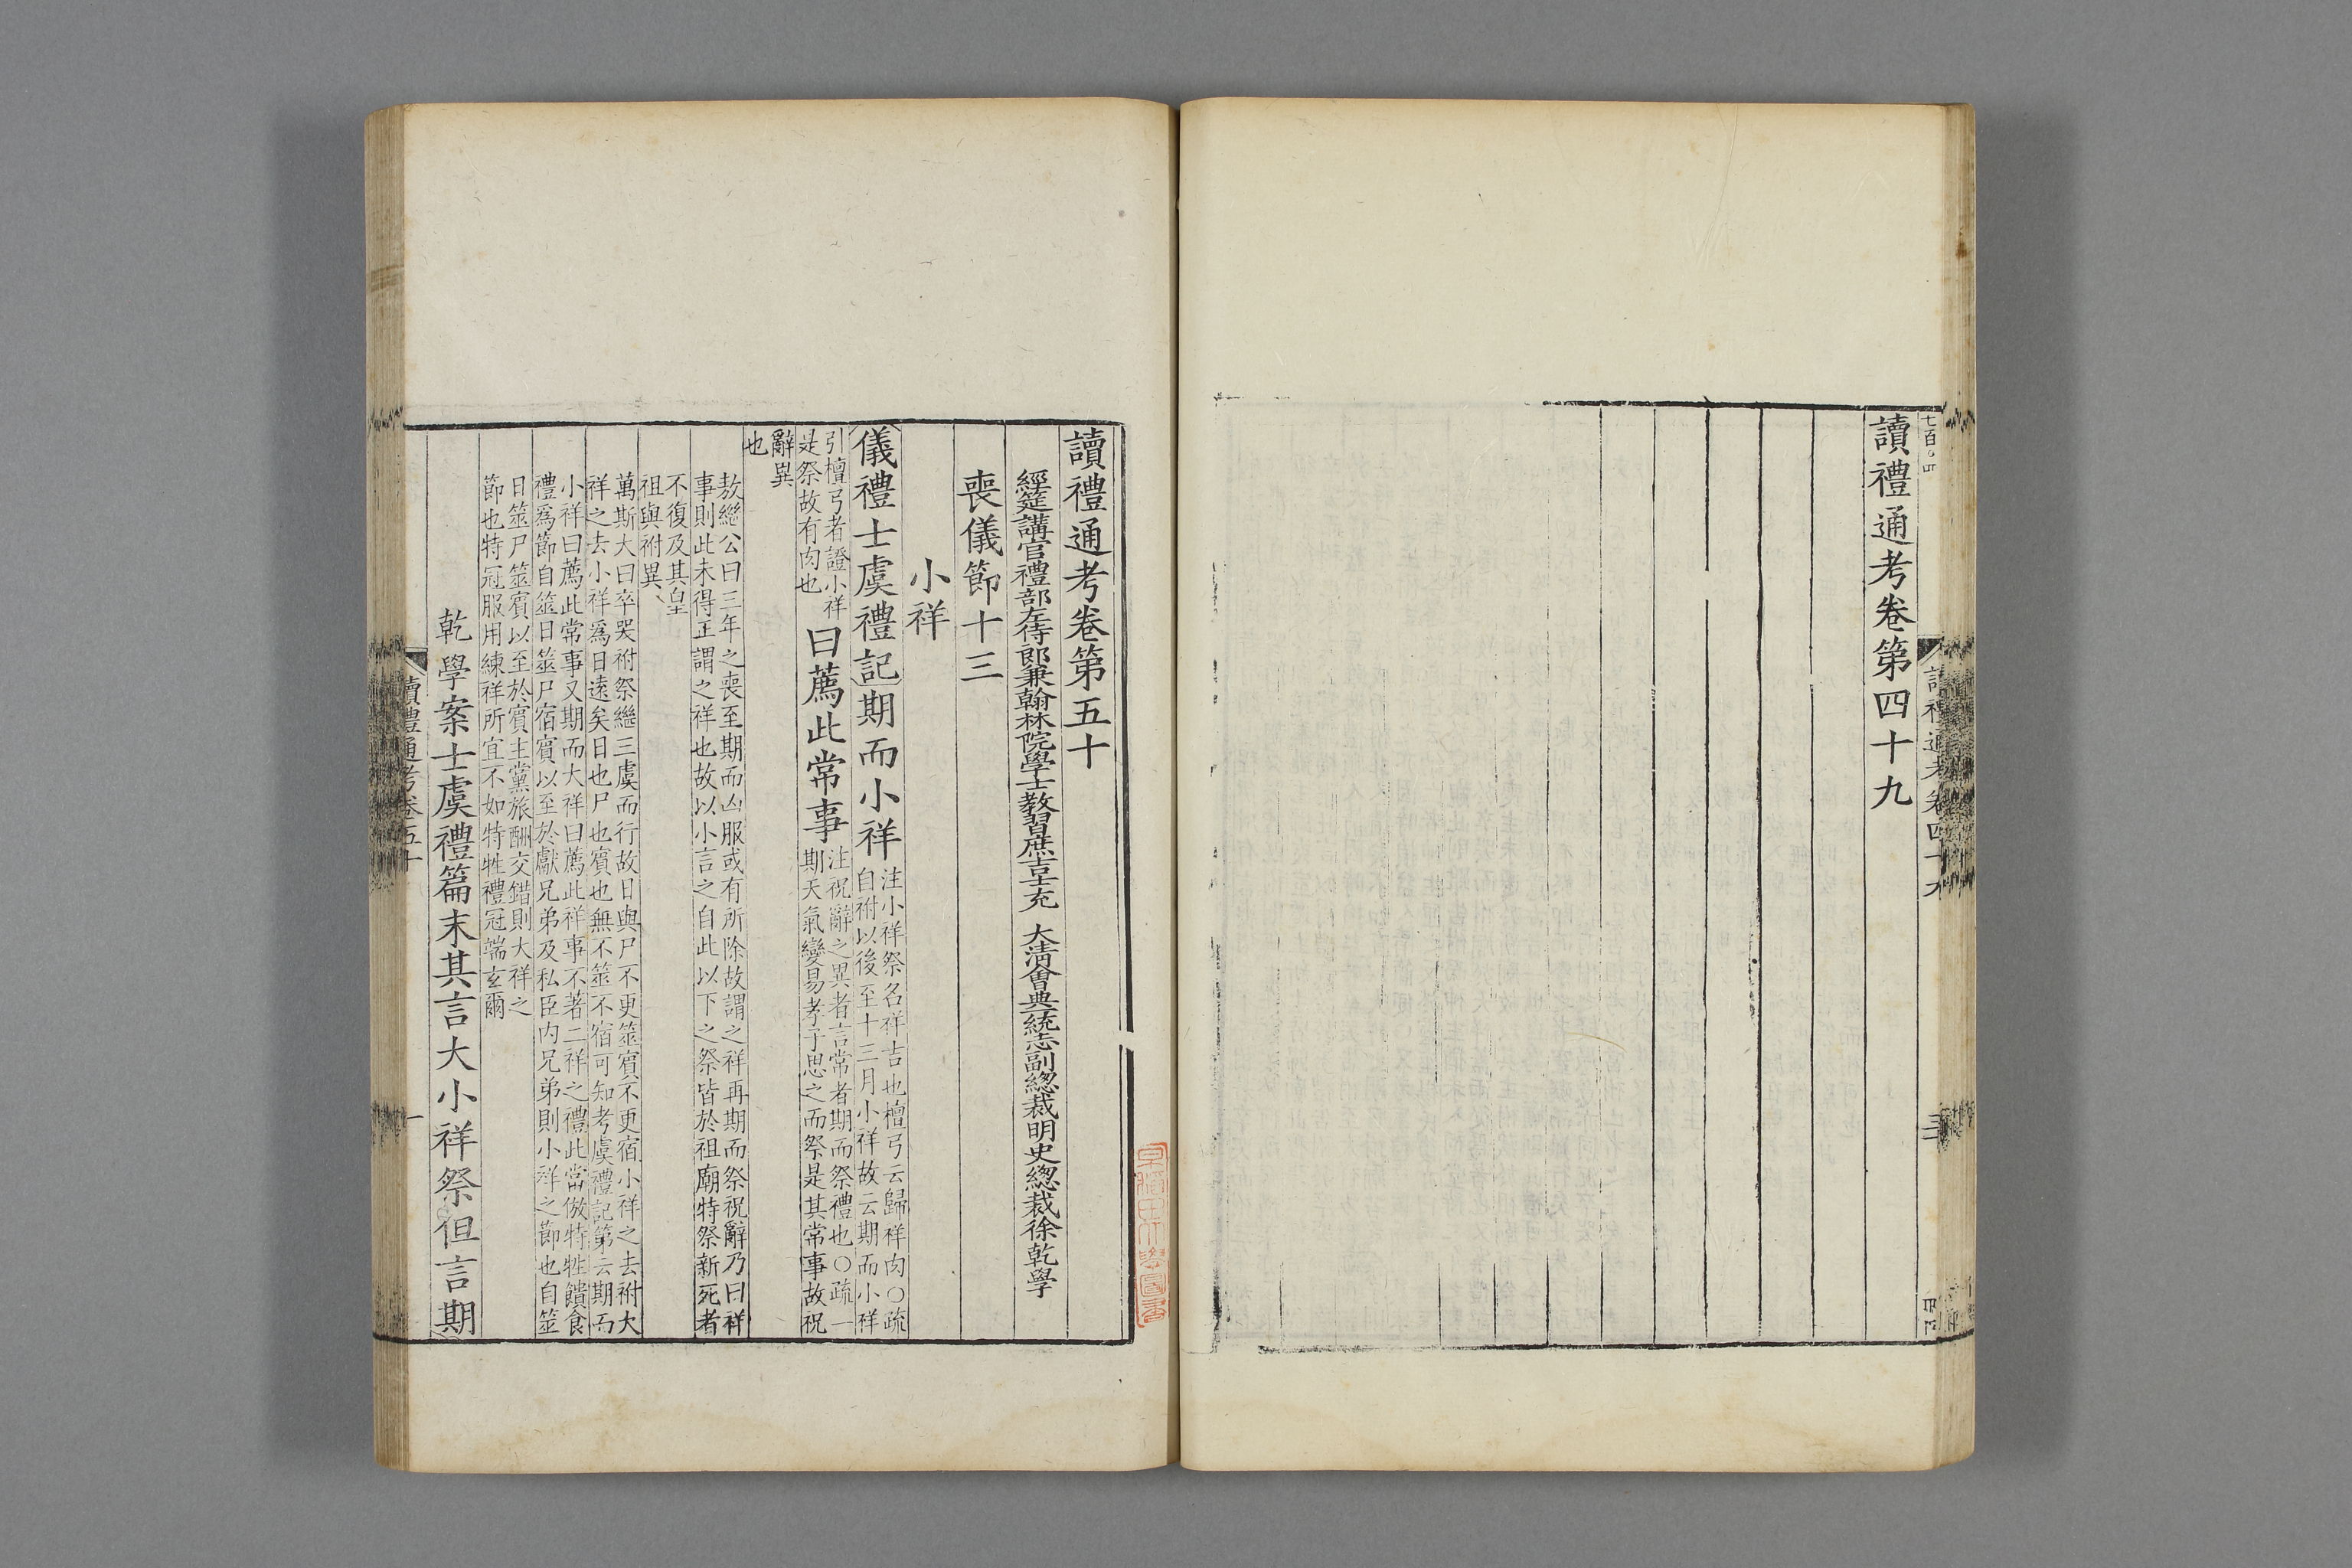 讀禮通考卷第四十九
讀禮通考卷第五十
經筵講官禮部左侍郎兼翰林院學士教習庶吉士充 大清會典一統志副總裁明史總裁徐乾學
喪儀節十三
小祥
儀禮士虞禮記期而小祥
注小祥祭名祥吉也檀弓云歸祥肉○疏
自祔以後至十三月小祥故云期而小祥
引檀弓者證小祥
是祭故有肉也
曰薦此常事
注祝辭之異者言常者期而祭禮也○疏一
期天氣變易孝子思之而祭是其常事故祝
辭異
也
敖繼公曰三年之喪至期而凶服或有所除故謂之祥再期而祭祝辭乃曰祥
事則此未得正謂之祥也故以小言之自此以下之祭皆於祖廟特祭新死者
不復及其皇
祖與祔異
萬斯大曰卒哭祔祭繼三虞而行故日與尸不更筮賓不更宿小祥之去祔大
祥之去小祥爲日遠矣日也尸也賓也無不筮不宿可知考虞禮記第云期而
小祥曰薦此常事又期而大祥曰薦此祥事不著二祥之禮此當倣特牲饋食
禮爲節自筮日筮尸宿賓以至於獻兄弟及私臣内兄弟則小祥之節也自筮
日筮尸筮賓以至於賓主黨旅酬交錯則大祥之
節也特冠服用練祥所宜不如特牲禮冠端玄爾
乾學案士虞禮篇末其言大小祥祭但言期
讀禮通考卷五十
一